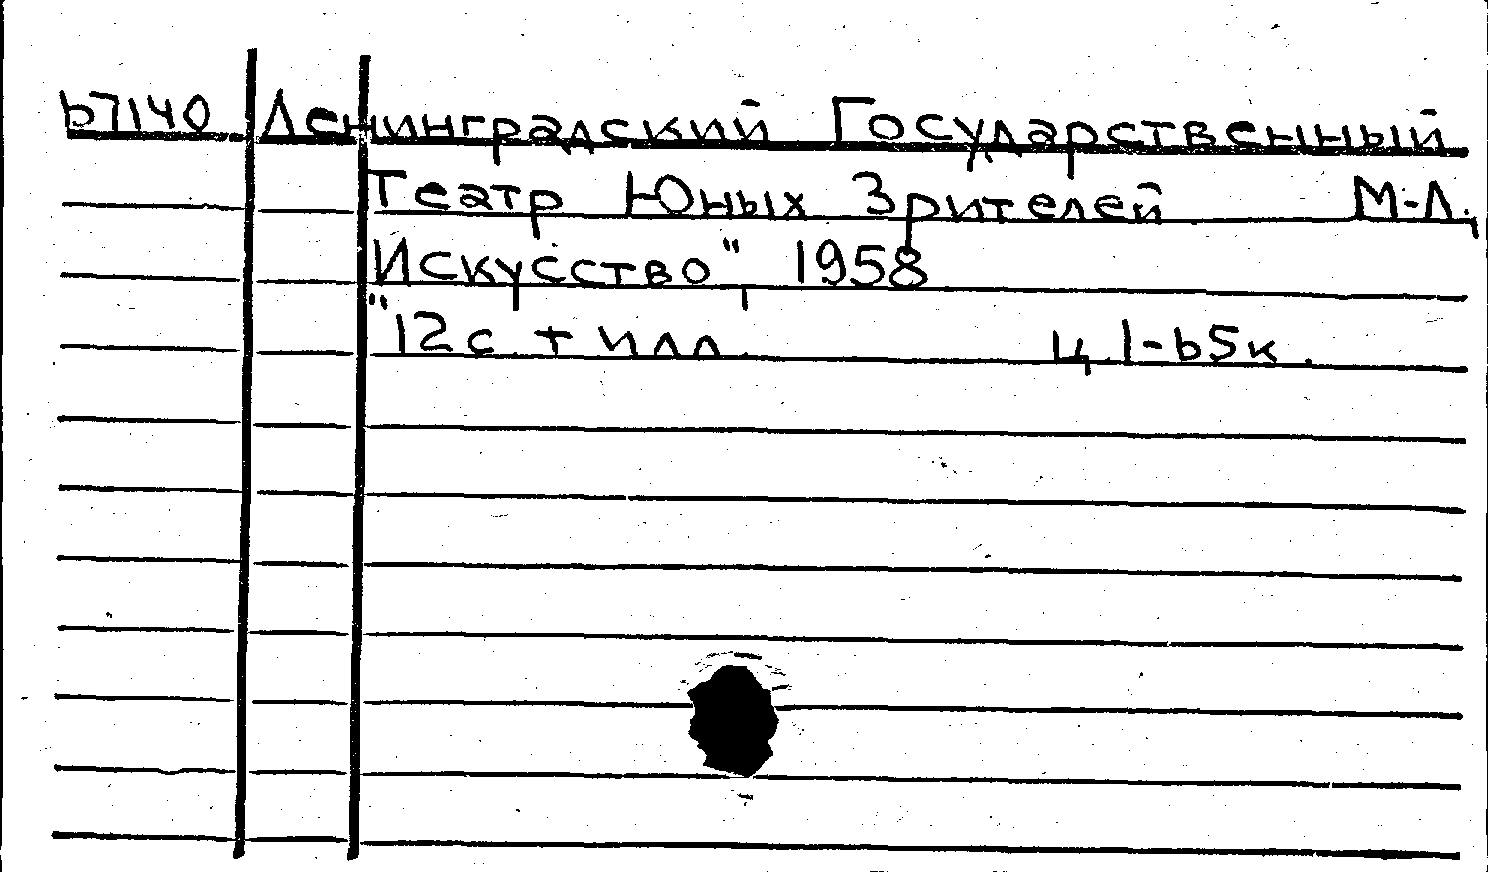 Б7140 Ленинградский Государственный
Театр Юных Зрителей М-Л.,
"Искусство", 1958
12с. + илл. ц. 1-65к.